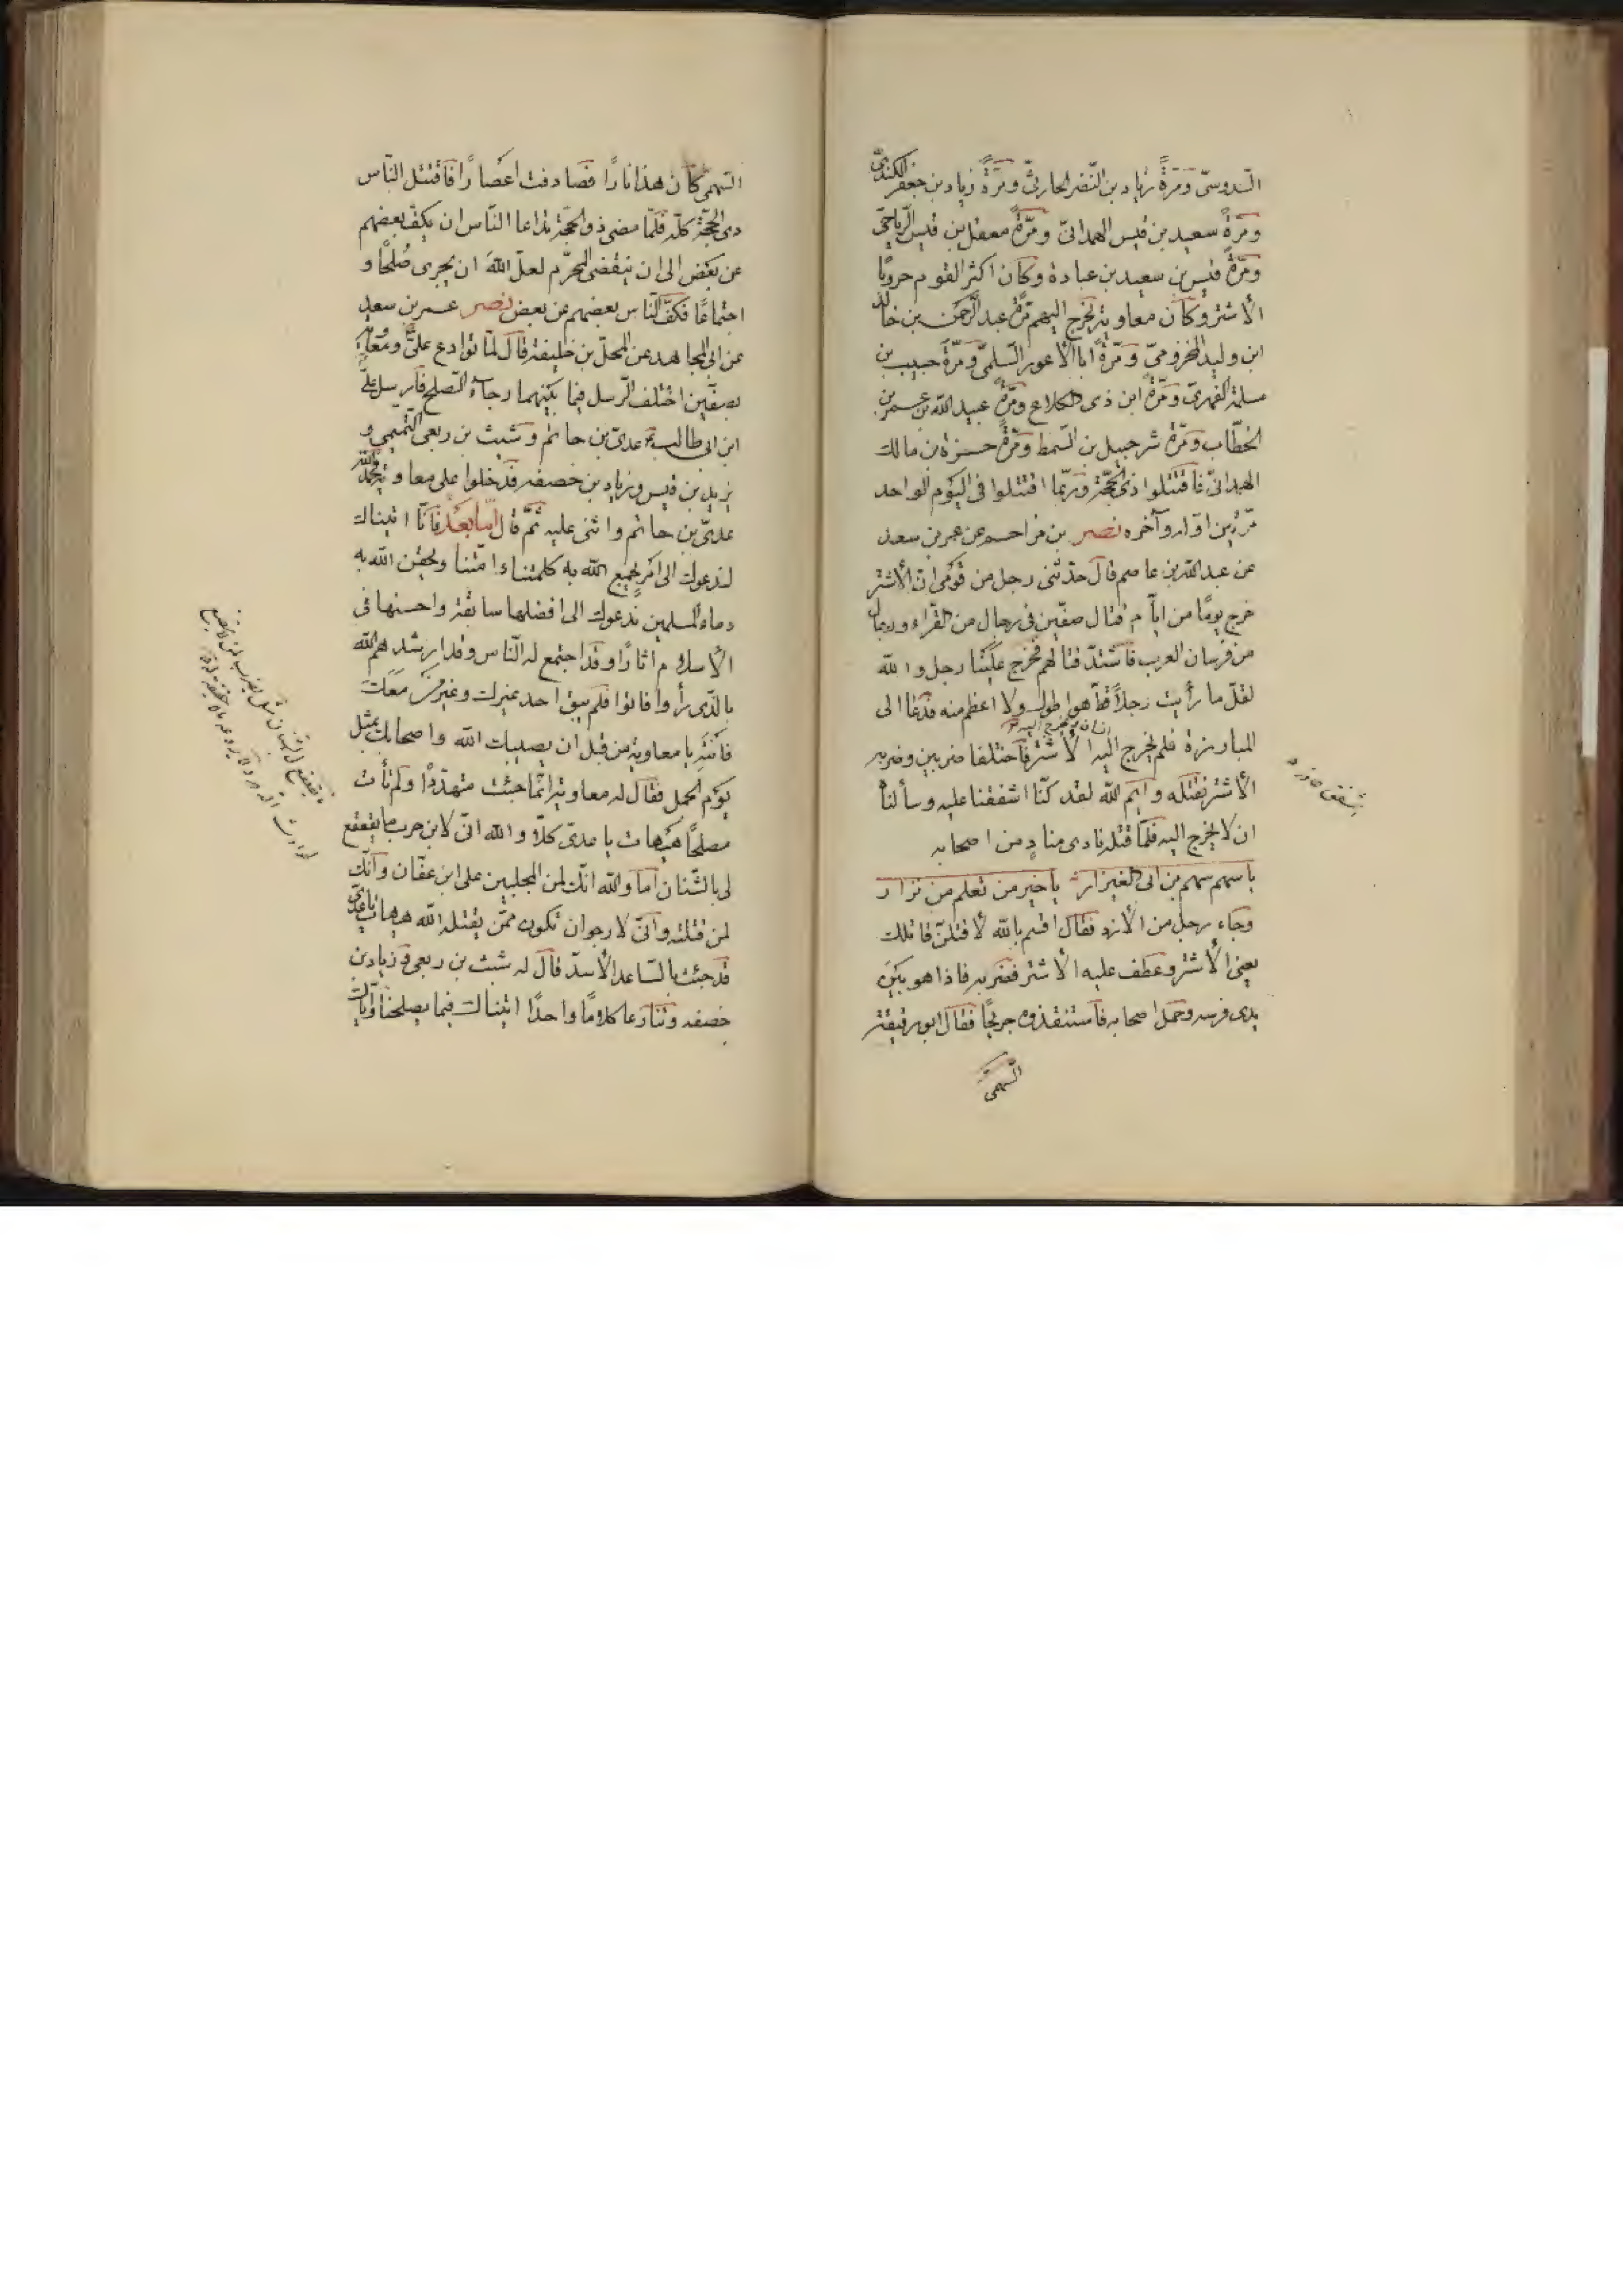 السدوسیّ وَمَرَةً زیاد بن النّضر الحارثیّ ومَرَةً زیاد بن جعفر الکندیّ
ومَرّةً سعید بن قیس الهمدانیّ ومَرّةً معقل بن قیس الرّیاحیّ
ومَرّةً قیس بن سعید بن عبادة وکان اکثر القوم حروبًا
الأشتر وکان معاویة یخرج الیهم مَرّةً عبد الرّحمن بن خالد
ابن ولید المخزومیّ ومَرّةً ابا الأعور السّلمیّ ومَرّةً حبیب بن
مسلمة الفهریّ ومَرّةً ابن ذی الکلاع ومَرّةً عبید الله بن عمر بن
الخطّاب ومَرّةً شرحبیل بن السّمط ومَرّةً حمزة بن مالک
الهمدانیّ فاقتتلوا ذی الحجّة وربّما اقتتلوا فی الیوم الواحد
مَرّتین اوّله وآخره نصر بن مزاحم عن عمر بن سعد
عن عبد الله بن عاصم قال حدّثنی رجل من قومی انّ الأشتر
خرج یومًا من ایّام قتال صفّین فی رجال من القرّاء ورجال
من فرسان العرب فاشتدّ قتالهم فخرج علینا رجل والله
لقلّ ما رأیت رجلًا قطّ هو اطول ولا اعظم منه فدعا الی
المبارزة فلم یخرج الیه الأشتر فاختلفا ضربتین وضربه
الأشتر فقتله وایم الله لقد کنّا اشفقنا علیه وسألناه
ان لا یخرج الیه فلمّا قتله نادی منادٍ من اصحابه
یا سهم سهم بن ابی العیزار یا خیر من نعلم من نزار
وجاء رجل من الأزد فقال اقسم بالله لأقتلنّ قاتلک
یعنی الأشتر وعطف علیه الأشتر فضربه فاذا هو بین
یدی فرسه وحمل اصحابه فاستنقذوه جریحًا فقال ابو رقیقة
السّهمی
السّهمی کان هذا نارًا فصادفت اعصارًا فاقتتل النّاس
ذی الحجّة کلّه فلمّا مضی ذو الحجّة تداعا النّاس ان یکفّ بعضهم
عن بعض الی ان ینقضی المحرّم لعلّ الله ان یجری صُلحًا و
اجتماعًا فکفّ النّاس بعضهم عن بعض نصر عمر بن سعد
عن ابی المجاهد عن المحلّ بن خلیفة قال لمّا توادع علیّ ع ومعاویة
بصفّین اختلف الرّسل فیما بینهما رجاء الصّلح فارسل علیّ
ابن ابی طالب ع عدیّ بن حاتم وشبث بن ربعی التّمیمی و
یزید بن قیس وزیاد بن خصفه فدخلوا علی معاویة فحمد الله
عدیّ بن حاتم واثنی علیه ثمّ قال امّا بعد فانّا اتیناک
لندعوک الی امرٍ یجمع الله به کلمتنا وامّتنا ویحقن الله به
دماء المسلمین ندعوک الی افضلها سابقة واحسنها فی
الأسلام اثارًا وقد اجتمع له النّاس وقد ارشدهم الله
بالّذی رأوا فاتوا فلم یبق احد غیرک وغیر من معک
فانته یا معاویة من قبل ان یصیبک الله واصحابک بمثل
یوم الجمل فقال له معاویة انّما جئت متهدّدًا ولم تأت
مصلحًا هیهات یا عدیّ کلّا والله انّی لابن حرب ما یقعقع
لی بالشّنان اما والله انّک لمن المجلبین علی ابن عفّان وانّک
لمن قتلته وانّی لارجو ان تکون ممّن یقتله الله هیهات یا عدیّ
قد جئت بالسّاعد الأسدّ قال له شبث بن ربعی و زیاد بن
خصفه وتنازعا کلامًا واحدًا اتیناک فیما یصلحنا وایّاک